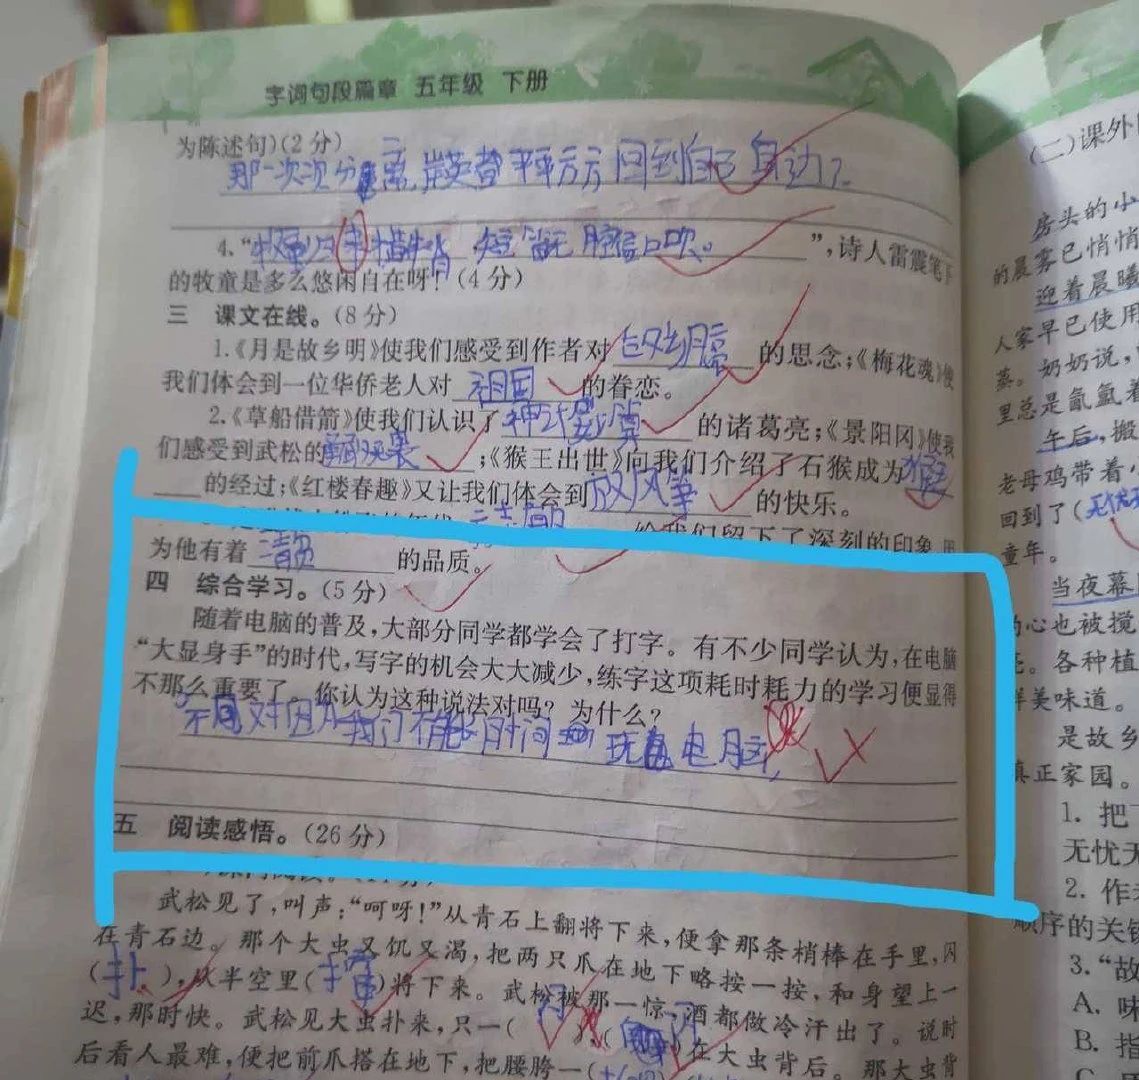 字词句段篇章 五年级 下册
为陈述句)(2分)
那一次次分离
回到自己身边了。
4.“牧童归 横牛背,短笛无腔信口吹。”,诗人雷震笔下
的牧童是多么悠闲自在呀!(4分)
三 课文在线。(8分)
1.《月是故乡明》使我们感受到作者对 的思念;《梅花魂》使
我们体会到一位华侨老人对 祖国 的眷恋。
2.《草船借箭》使我们认识了 神机妙算 的诸葛亮;《景阳冈》使我
们感受到武松的 ;《猴王出世》向我们介绍了石猴成为 猴
的经过;《红楼春趣》又让我们体会到 放风筝 的快乐。
给我们留下了深刻的印象,因
为他有着 清贫 的品质。
四 综合学习。(5分)
随着电脑的普及,大部分同学都学会了打字。有不少同学认为,在电脑
“大显身手”的时代,写字的机会大大减少,练字这项耗时耗力的学习便显得
不那么重要了。你认为这种说法对吗?为什么?
不 对因为我们不能 时间 玩 电脑,
五 阅读感悟。(26分)
武松见了,叫声:“呵呀!”从青石上翻将下来,便拿那条梢棒在手里,闪
在青石边。那个大虫又饥又渴,把两只爪在地下略按一按,和身望上一
(扑),从半空里( )将下来。武松被那一惊,酒都做冷汗出了。说时
迟,那时快。武松见大虫扑来,只一( ),( )在大虫背后。那大虫背
后看人最难,便把前爪搭在地下,把腰胯一(
(二)课外
房头的小
的晨雾已悄悄
迎着晨曦
人家早已使用
奶奶说,
里总是氤氲着
午后,搬
老母鸡带着小
回到了(无忧无
童年。
当夜幕
的心也被搅
各种植
样美味道。
是故乡
真正家园。
1. 把
无忧无
2. 作者
顺序的关键
3.“故
A. 味
B. 指